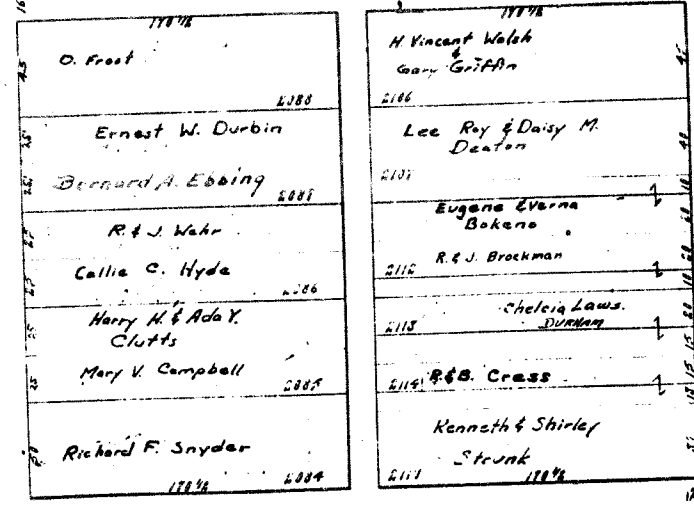 O. Froot
2088
Ernest W. Durbin
Bernard A. Ebbing
2087
R. & J. Wehr
Callie C. Hyde
2086
Harry H. & Ada Y.
Clutts
Mary V. Campbell
2085
Richard F. Snyder
2084
H. Vincent Walsh
&
Gary Griffin
2106
Lee Roy & Daisy M.
Deaton
2107
Eugene & Verna
Bokeno
R. & J. Brockman
2112
Chelcia Laws.
DURHAM
2113
R. & B. Cress
2114
Kenneth & Shirley
Strunk